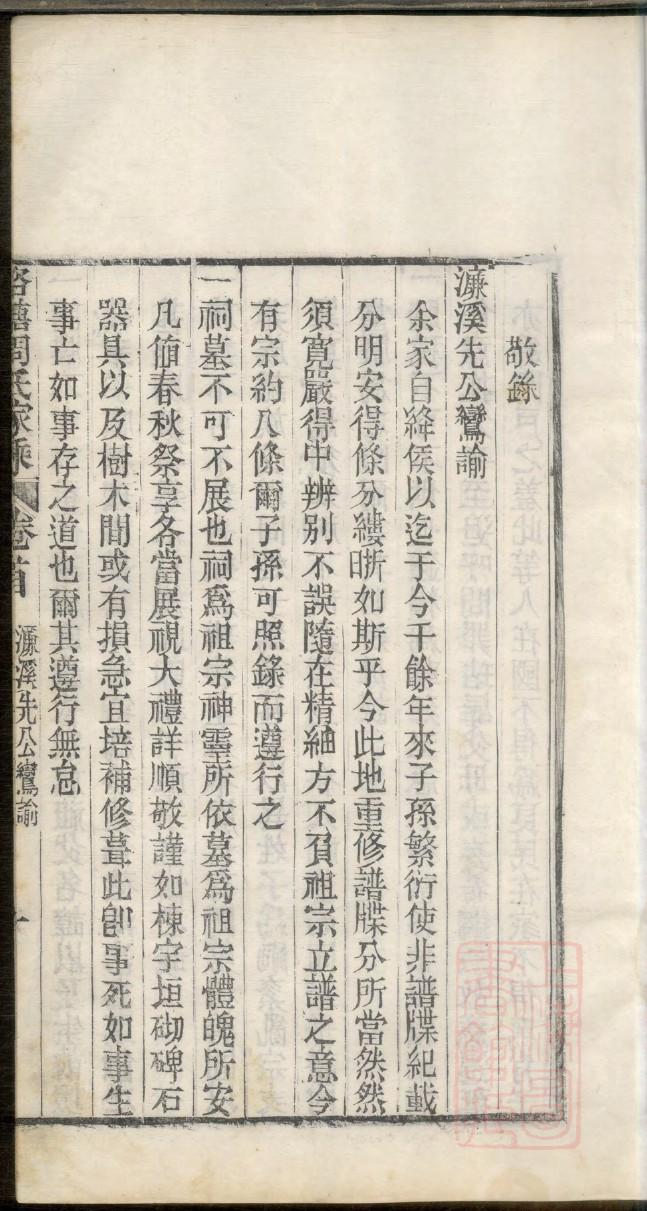 敬錄
濂溪先公鸞諭
余家自絳侯以迄于今千餘年來子孫繁衍使非譜牒紀載
分明安得條分縷晣如斯乎今此地重修譜牒分所當然然
須寬嚴得中辨別不誤隨在精細方不負祖宗立譜之意今
有宗約八條爾子孫可照錄而遵行之
一祠墓不可不展也祠爲祖宗神靈所依墓爲祖宗體魄所安
凡値春秋祭享各當展視大禮詳順敬謹如棟宇垣砌碑石
器具以及樹木間或有損急宜培補修葺此卽事死如事生
事亡如事存之道也爾其遵行無怠
周氏家乘 卷首 濂溪先公鸞諭